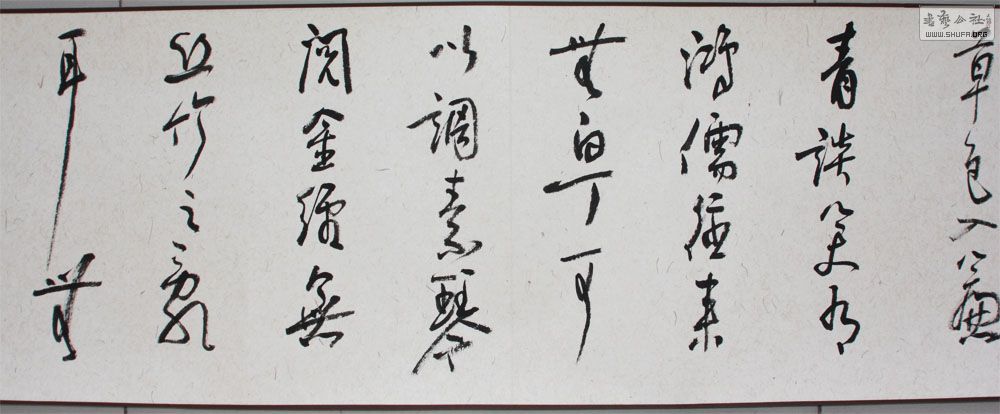 草色入簾
青談笑有
鴻儒徃来
無白丁可
以調素琴
閱金經無
丝竹之亂
耳無
書藝公社
WWW.SHUFA.ORG